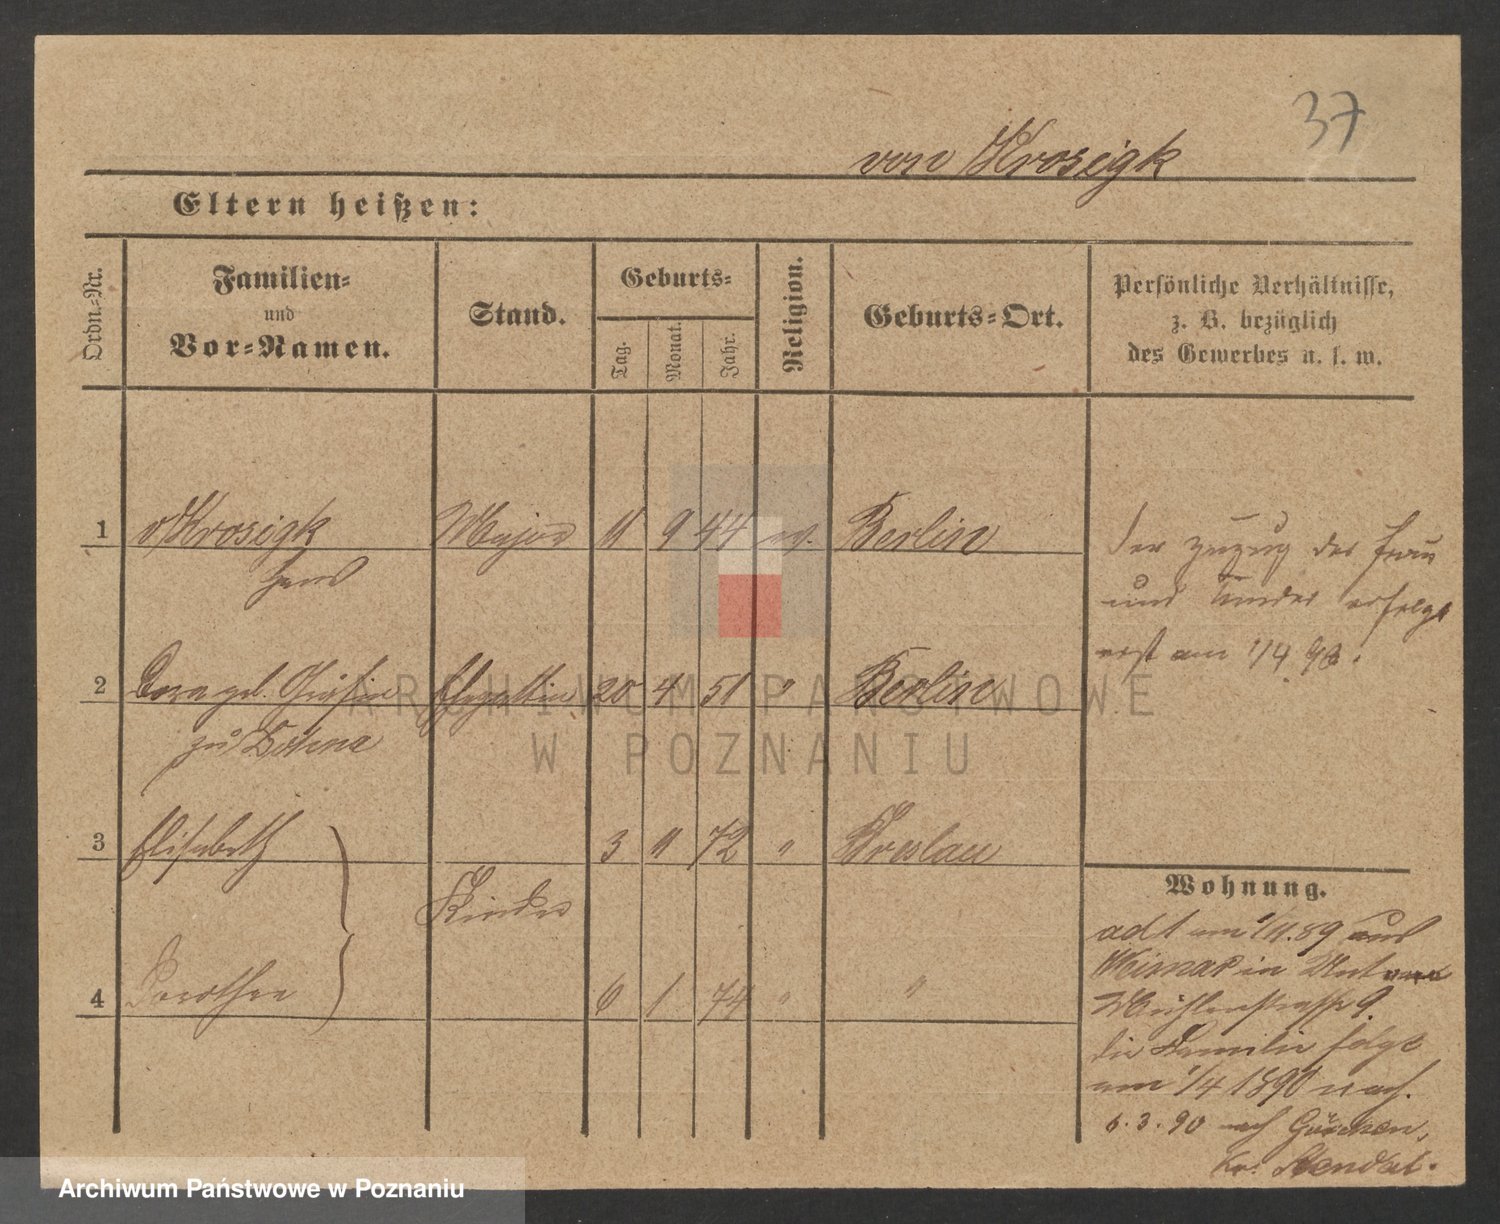 37
von Krosigk
Eltern heißen:
Ordn.-Nr.
Familien-
und
Vor-Namen.
Stand.
Geburts-
Tag.
Monat.
Jahr.
Religion.
Geburts-Ort.
Persönliche Verhältnisse,
z. B. bezüglich
des Gewerbes u. s. w.
1 v Krosigk Major 11 9 44 ev. Berlin
Hans
2 geb. Gräfin Ehegattin 20 4 51 " Berlin
zu Dohna
3 Elisabeth 3 11 72 " Breslau
Kinder
4 Dorothea 6 1 74 " "
Der Zuzug der Frau
und Kinder erfolgt
erst am 1/4 90.
Wohnung.
am 1/11.89 aus
Weimar in
Mühlenstrasse 9.
die Familie folgt
am 1/4 1890 nach.
6.3.90 nach
Kr. Stendal.
ARCHIWUM PAŃSTWOWE
W POZNANIU
Archiwum Państwowe w Poznaniu